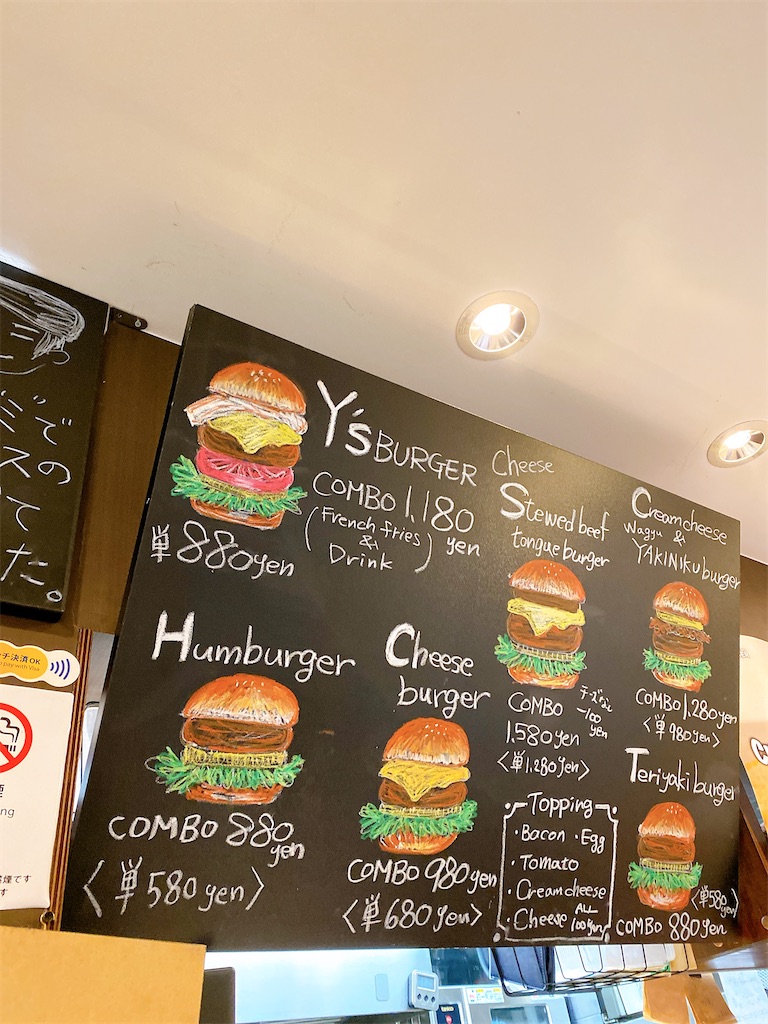 ミスでの
てた。
Y's BURGER
COMBO 1.180 yen
(French fries
&
Drink)
単 880yen
Cheese
Stewed beef
tongue burger
COMBO
1.580 yen
チーズなし
-100
yen
<単1.280yen>
Cream cheese
Wagyu &
YAKINIKU burger
COMBO 1.280yen
<単 980yen>
Humburger
COMBO 880
yen
<単 580 yen>
Cheese
burger
COMBO 980yen
<単 680yen>
Topping
・Bacon ・Egg
・Tomato
・Creamcheese
・Cheese ALL
100yen
Teriyaki burger
<単580yen>
COMBO 880yen
ッチ決済OK
pay with Visa
煙
ng
煙です
す